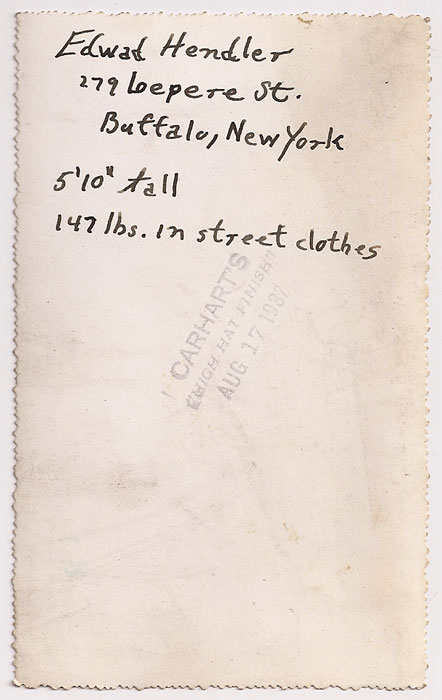 Edwad Hendler
279 Loepere St.
Buffalo, New York
5'10" tall
147 lbs. in street clothes
CARHART'S
"HIGH HAT FINISH"
AUG 17 1937